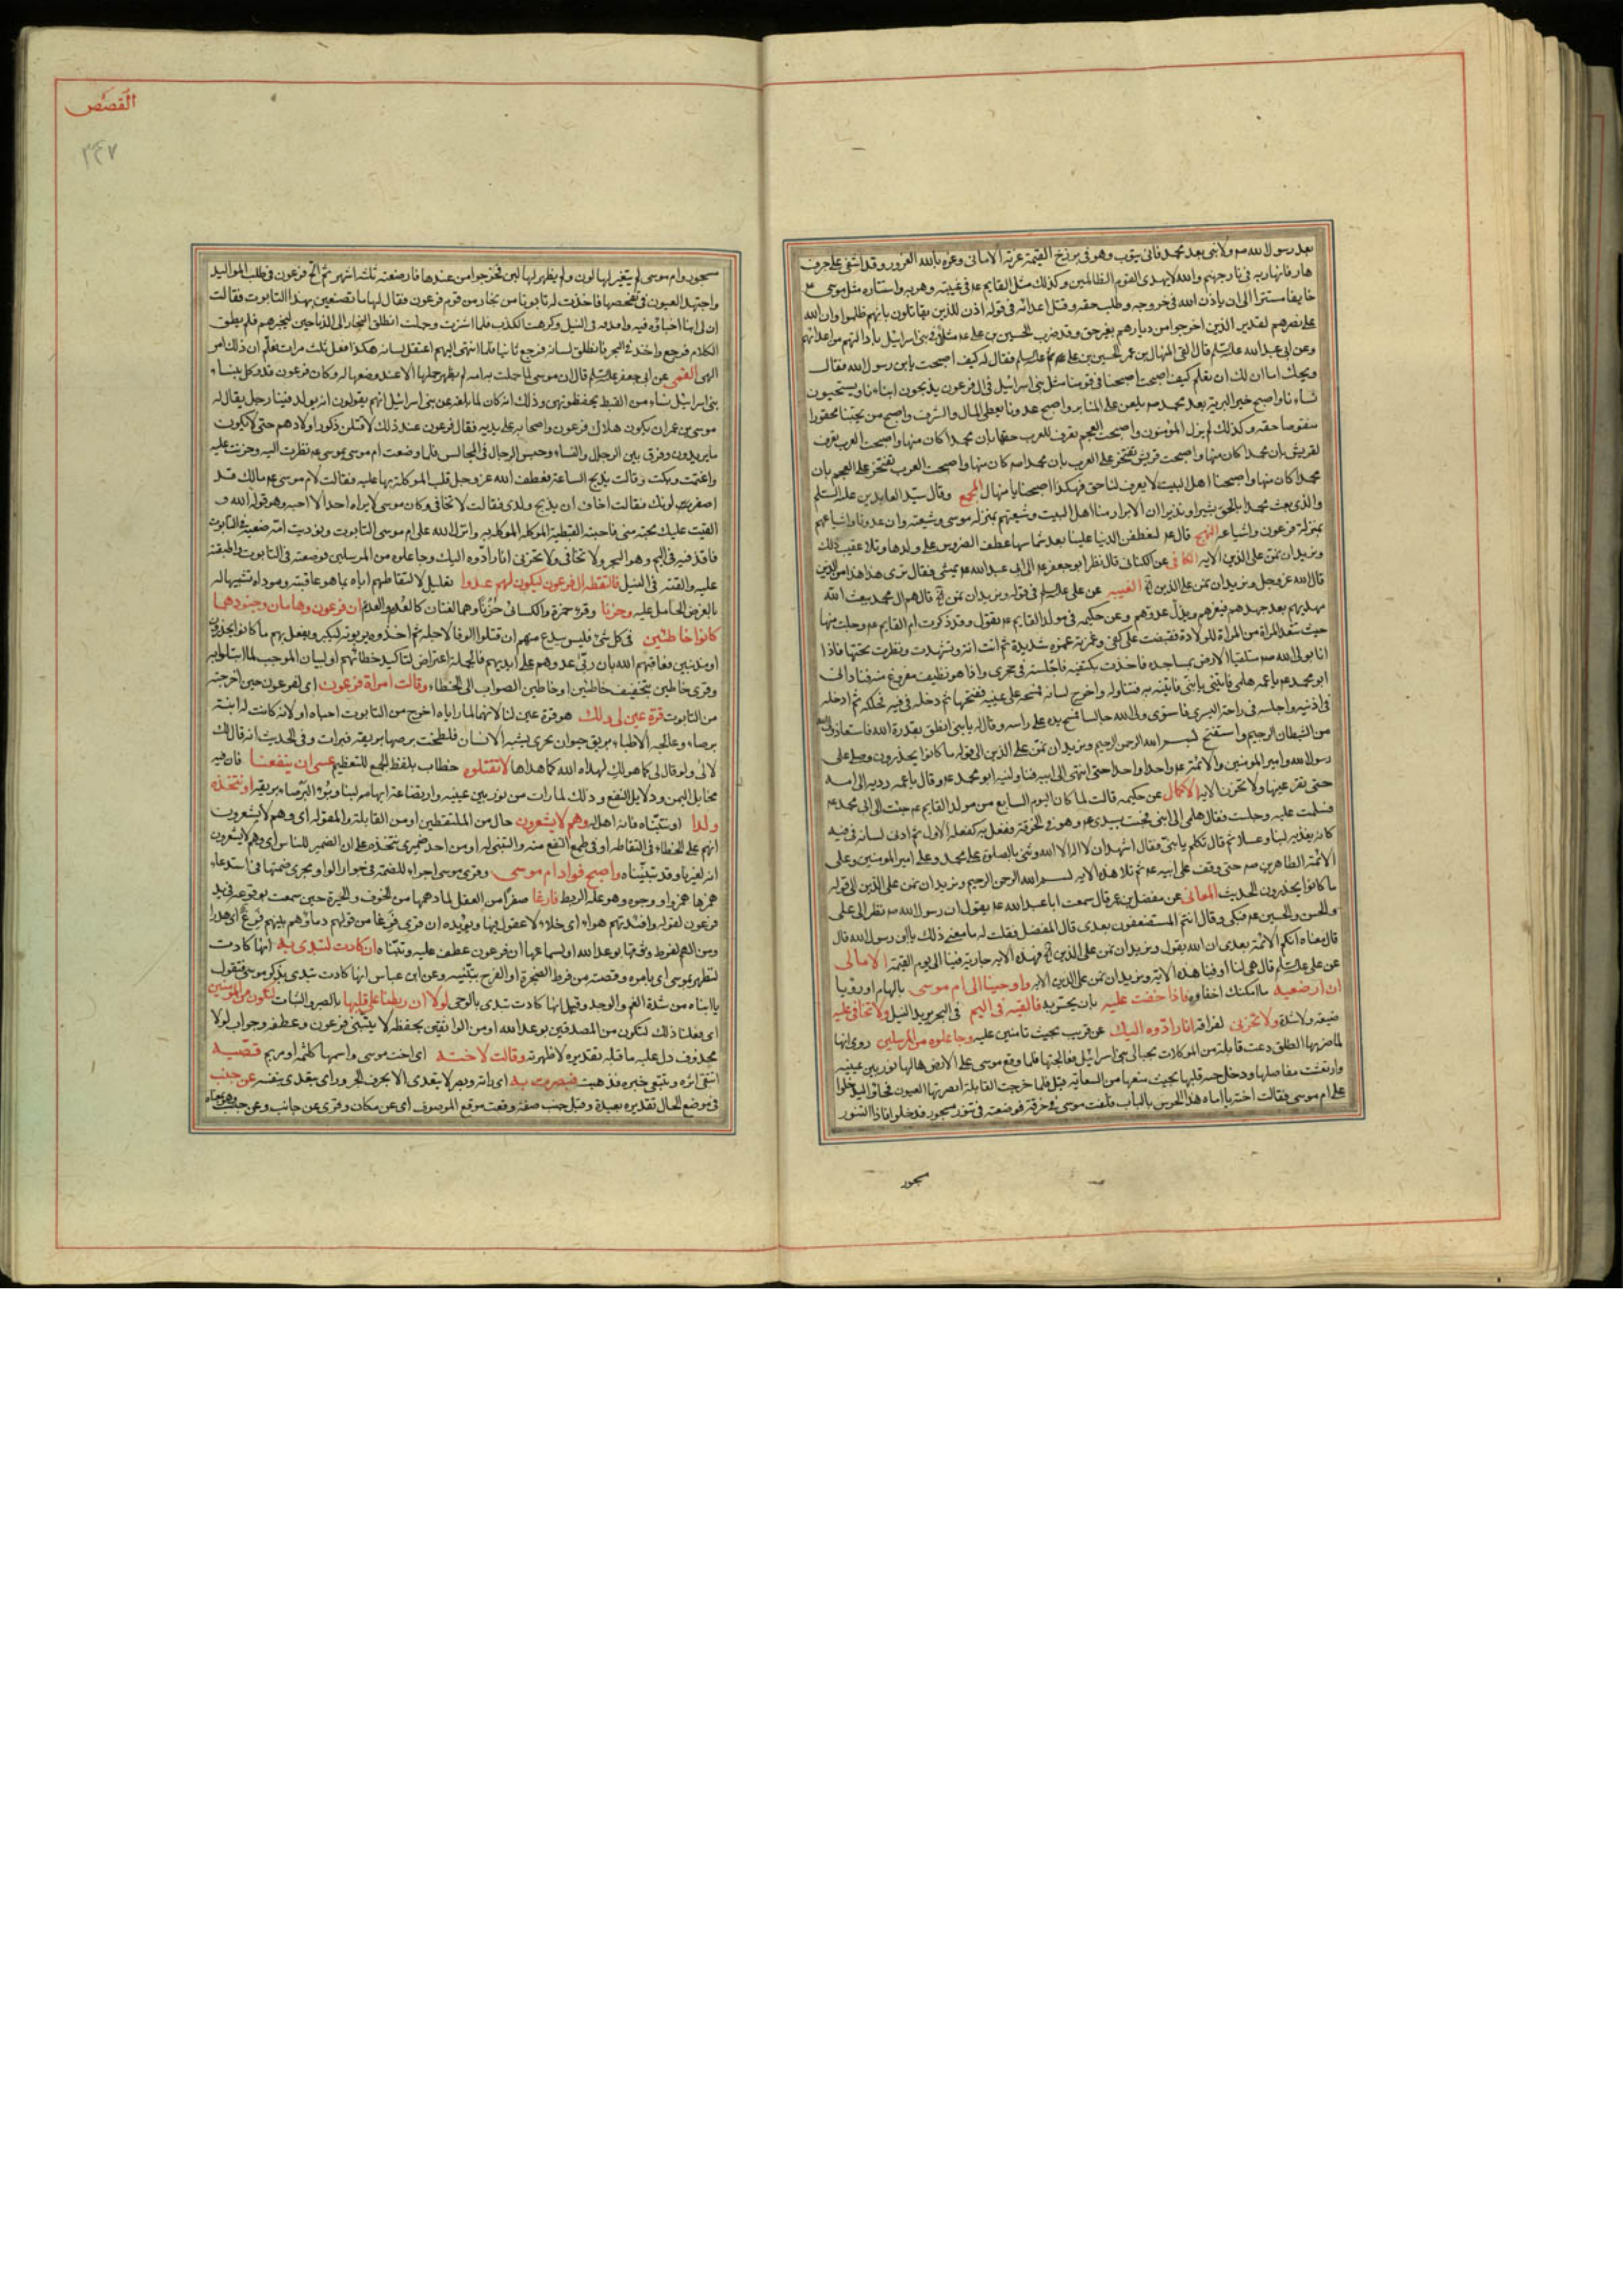 بعد رسول الله صم ولا نبى بعد محمد فانى يتوب وهو فى برزخ القيمة غرته الامانى وغره بالله الغرور وقد اشفى على جرف
هار فانهار به فى نار جهنم والله لا يهدى القوم الظالمين وكذلك مثل القايم عم فى غيبته وهربه واستتاره مثل موسى عم
خايفا مستترا الى ان ياذن الله فى خروجه وطلب حقه وقتل اعدائه فى قوله اذن للذين يقاتلون بانهم ظلموا وان الله
على نصرهم لقدير الذين اخرجوا من ديارهم بغير حق وقد ضرب الحسين بن على عم مثلا فى بنى اسرائيل
وعن ابى عبد الله عليه السلم قال لقى المنهال بن عمر الحسين بن على عم فقال له كيف اصبحت يا بن رسول الله فقال
ويحك اما ان لك ان تعلم كيف اصبحت اصبحنا فى قومنا مثل بنى اسرائيل فى ال فرعون يذبحون ابناءنا ويستحيون
نساءنا واصبح خير البرية بعد محمد صم يلعن على المنابر واصبح عدونا يعطى المال والشرف واصبح من يحبنا محقورا
منقوصا حقه وكذلك لم يزل المؤمنون واصبحت العجم تعرف للعرب حقها بان محمدا كان منها واصبحت العرب تعرف
لقريش بان محمدا كان منها واصبحت قريش تفتخر على العرب بان محمدا صم كان منها واصبحت العرب تفتخر على العجم بان
محمدا كان منها واصبحنا اهل البيت لا يعرف لنا حق فهكذا اصبحنا يا منهال المجمع وقال سيد العابدين عليه السلم
والذى بعث محمدا بالحق بشيرا ونذيرا ان الابرار منا اهل البيت وشيعتهم بمنزلة موسى وشيعته وان عدونا واشياعهم
بمنزلة فرعون واشياعه النهج قال عم لتعطفن الدنيا علينا بعد شماسها عطف الضروس على ولدها وتلا عقيب ذلك
ونريد ان نمن على الذين الاية الكافى عن الكنانى قال نظر ابو جعفر عم الى ابى عبد الله عم يمشى فقال ترى هذا هذا من الذين
قال الله عز وجل ونريد ان نمن على الذين الغيبه عن على عليه السلم فى قوله ونريد ان نمن قال هم ال محمد يبعث الله
مهديهم بعد جهدهم فيعزهم ويذل عدوهم وعن حكيمه فى مولد القايم عم
حيث تقعد المراة من المراة للولادة فقبضت على كفى وغمزته غمزة شديدة
انا بولى الله صم متلقيا الارض بمساجده فاخذت بكتفيه فاجلسته فى حجرى واذا هو نظيف مفروغ منه فنادانى
ابو محمد عم يا عمه هلمى فاتينى بابنى فاتيته به فتناوله واخرج لسانه فمسحه على عينيه ففتحها ثم دخله فى فيه فحنكه ثم ادخله
فى اذنيه واجلسه فى راحته اليسرى فاستوى ولى الله جالسا فمسح يده على راسه وقال له يا بنى انطق بقدرة الله فاستعاذ ولى الله
من الشيطان الرجيم واستفتح بسم الله الرحمن الرحيم ونريد ان نمن على الذين الى قوله ما كانوا يحذرون وصلى على
رسول الله وامير المومنين والائمه عم واحدا واحدا حتى انتهى الى ابيه فناولنيه ابو محمد عم وقال يا عمه رديه الى امه
حتى تقر عينها ولا تحزن الاية الاكمال عن حكيمه قالت لما كان اليوم السابع من مولد القايم عم جئت الى ابى محمد عم
فسلمت عليه وجلست فقال هلمى الى ابنى فجئت بسيدى عم وهو فى الخرقة ففعل به كفعله الاول ثم ادلى لسانه فى فيه
كانه يغذيه لبنا وعسلا ثم قال تكلم يا بنى فقال اشهد ان لا اله الا الله وثنى بالصلوة على محمد وعلى امير المومنين وعلى
الائمه الطاهرين صم حتى وقف على ابيه عم ثم تلا هذه الاية بسم الله الرحمن الرحيم ونريد ان نمن على الذين الى قوله
ما كانوا يحذرون الحديث المعانى عن مفضل بن عمر قال سمعت ابا عبد الله عم يقول ان رسول الله صم نظر الى على
والحسن والحسين عم فبكى وقال انتم المستضعفون بعدى قال المفضل فقلت له ما معنى ذلك يا بن رسول الله قال
قال معناه انكم الائمة بعدى ان الله يقول ونريد ان نمن على الذين فهذه الاية جارية فينا الى يوم القيمة الامالى
عن على عليه السلم قال هى لنا او فينا هذه الاية ونريد ان نمن على الذين الاية واوحينا الى ام موسى بالهام او رؤيا
ان ارضعيه ما امكنك اخفاوه فاذا خفت عليه بان يحس به فالقيه فى اليم فى البحر يريد النيل ولا تخافى عليه
ضيعة ولا شدة ولا تحزنى لفراقه انا رادوه اليك عن قريب بحيث تامنين عليه وجاعلوه من المرسلين روى انها
لما ضربها الطلق دعت قابلة من الموكلات بحبالى بنى اسرائيل فعالجتها فلما وقع موسى على الارض هالها نور بين عينيه
وارتعشت مفاصلها ودخل حبه قلبها بحيث منعها من السعاية فلما خرجت القابلة ابصرتها العيون فجاؤا ليدخلوا
على ام موسى فقالت اخته يا اماه هذا الحرس بالباب فلفت موسى فى خرقة فوضعته فى تنور مسجور فدخلوا فاذا التنور
مسجور
القصص
٢٤٧
مسجور وام موسى لم يتغير لها لون ولم يظهر لها لبن فخرجوا من عندها فارضعته ثلثه اشهر ثم الح فرعون فى طلب المواليد
واجتهد العيون فى تفحصها فاخذت له تابوتا من نجار من قوم فرعون فقال لها ما تصنعين بهذا التابوت فقالت
ان لى ابنا اخباؤه فيه وكرهت الكذب فلما اشترت وحملت انطلق النجار الى الذباحين ليخبرهم فلم يطق
الكلام فرجع واخذ فى النجر فانطلق لسانه فرجع ثانيا فلما انتهى اليهم اعتقل لسانه هكذا فعل ثلث مرات فعلم ان ذلك امر
الهى القمى عن ابى جعفر عليه السلم قال ان موسى لما حملت به امه لم يظهر حملها الا عند وضعها له وكان فرعون قد وكل بنساء
بنى اسرائيل نساء من القبط يحفظونهن وذلك انه كان لما بلغه عن بنى اسرائيل انهم يقولون انه يولد فينا رجل يقال له
موسى بن عمران يكون هلاك فرعون واصحابه على يديه فقال فرعون عند ذلك لاقتلن ذكور اولادهم حتى لا يكون
ما يريدون وفرق بين الرجال والنساء وحبس الرجال فى المجالس فلما وضعت ام موسى بموسى عم نظرت اليه وحزنت عليه
واغتمت وبكت وقالت يذبح الساعة فعطف الله عز وجل قلب الموكلة بها عليه فقالت لام موسى عم مالك قد
اصفر لونك فقالت اخاف ان يذبح ولدى فقالت لا تخافى وكان موسى لا يراه احد الا احبه وهو قول الله و
القيت عليك محبة منى فاحبته القبطية الموكلة به وانزل الله على ام موسى التابوت ونوديت امه ضعيه فى التابوت
فاقذفيه فى اليم وهو البحر ولا تخافى ولا تحزنى انا رادوه اليك وجاعلوه من المرسلين فوضعته فى التابوت واطبقته
عليه والقته فى النيل فالتقطه ال فرعون ليكون لهم عدوا تعليل لالتقاطهم اياه بما هو عاقبته ومؤداه تشبيها له
بالغرض الحامل عليه وحزنا وقرء حمزة والكسائى حُزْنا وهما لغتان كالعُدم والعدم ان فرعون وهامان وجنودهما
كانوا خاطئين فى كل شئ فليس ببدع منهم ان قتلوا الوفا لاجله ثم اخذوه يربونه ليكبر ويفعل بهم ما كانوا يحذرون
او مذنبين فعاقبهم الله بان ربى عدوهم على ايديهم فالجملة اعتراض لتاكيد خطائهم او لبيان الموجب لما ابتلوا به
وقرى خاطين بتخفيف خاطئين او خاطين الصواب الى الخطاء وقالت امراة فرعون اى لفرعون حين اخرجته
من التابوت قرة عين لى ولك هو قرة عين لنا لانهما لما راياه اخرج من التابوت احباه او لانه كانت له ابنة
برصاء وعالجه الاطباء بريق حيوان بحرى يشبه الانسان فلطخت برصها بريقه فبرات وفى الحديث انه قال لك
لا لى ولو قال لى كما هو لك لهداه الله كما هداها لا تقتلوه خطاب بلفظ الجمع للتعظيم عسى ان ينفعنا فان فيه
مخايل اليمن ودلايل النفع وذلك لما رات من نور بين عينيه وارتضاعه ابهامه لبنا وبرء البرصاء بريقه او نتخذه
ولدا او نتبناه فانه اهل له وهم لا يشعرون حال من الملتقطين او من القابلة والمقول له اى وهم لا يشعرون
انهم على الخطاء فى التقاطه او فى طمع النفع منه والتبنى له او من احد ضميرى نتخذه على ان الضمير للناس اى وهم لا يشعرون
انه لغيرنا وقد تبنيناه واصبح فواد ام موسى وقرى موسى اجراء للضمة فى جوار الواو مجرى ضمتها فى استدعاء
همزها همز واو وجوه وهو على الربط فارغا صفرا من العقل لما دهمها من الخوف والحيرة حين سمعت بوقوعه فى يد
فرعون لقوله وافئدتهم هواء اى خلاء لا عقول فيها ويؤيده ان قرى فرغا من قولهم دماؤهم بينهم فرغ اى هدرا
ومن الهم لفرط وثوقها بوعد الله او لسماعها ان فرعون عطف عليه وتبناه ان كادت لتبدى به انها كادت
لتظهر بموسى اى بامره وقصته من فرط الضجرة او الفرح بتبنيه وعن ابن عباس انها كادت تبدى بذكر موسى فتقول
يا ابناه من شدة الغم والوجد وقيل انها كادت تبدى بالوحى لولا ان ربطنا على قلبها بالصبر والثبات لتكون من المؤمنين
اى فعلنا ذلك لتكون من المصدقين بوعد الله او من الواثقين بحفظه لا بتبنى فرعون وعطفه وجواب لولا
محذوف دل عليه ما قبله تقديره لاظهرته وقالت لاخته اى اخت موسى واسمها كلثمه او مريم قصيه
اتبعى اثره وتتبعى خبره فذهبت فبصرت به اى راته وبصر لا يتعدى الا بحرف الجر وراى يتعدى بنفسه عن جنب
فى موضع الحال تقديره بعيدة وقيل جنب صفة وقعت موقع الموصوف اى عن مكان وقرى عن جانب وعن جنب وهو بمعناه